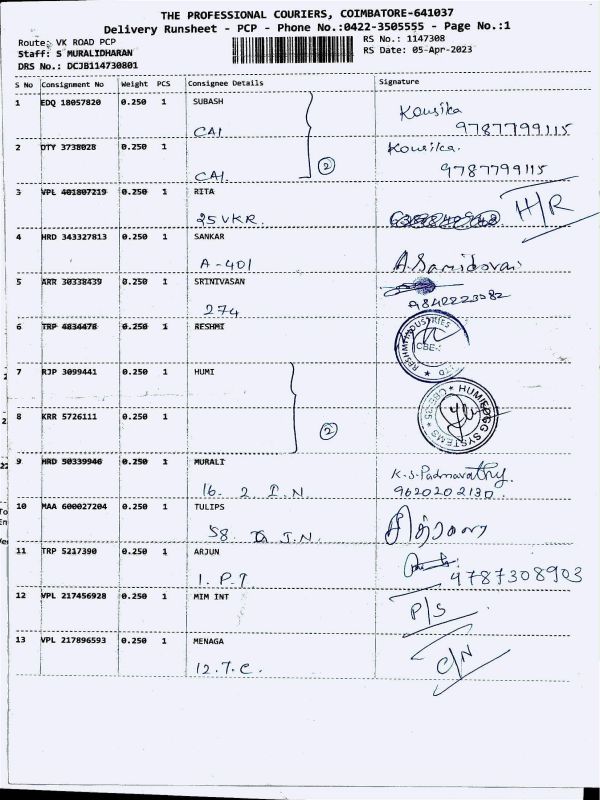 THE PROFESSIONAL COURIERS, COIMBATORE-641037
Delivery Runsheet - PCP - Phone No.:0422-3505555 - Page No.:1
Route: VK ROAD PCP
RS No.: 1147308
Staff: S MURALIDHARAN
RS Date: 05-Apr-2023
DRS No.: DCJB114730801
S No Consignment No Weight PCS Consignee Details Signature
1 EDQ 18057820 0.250 1 SUBASH Kousika
CAI 9787799115
2 DTY 3738028 0.250 1 Kousika.
CAI. 2 9787799115
3 VPL 401807219 0.250 1 RITA H/R
25 VKR.
4 HRD 343327813 0.250 1 SANKAR
A-401
5 ARR 30338439 0.250 1 SRINIVASAN
274 9842223082
6 TRP 4834478 0.250 1 RESHMI
7 RJP 3099441 0.250 1 HUMI
8 KRR 5726111 0.250 1 2
9 HRD 50339946 0.250 1 MURALI K.S.Padmavathy.
16. 2. I.N. 9620202130.
10 MAA 600027204 0.250 1 TULIPS
58. I.N.
11 TRP 5217390 0.250 1 ARJUN
1. P.T. 9787308903
12 VPL 217456928 0.250 1 MIM INT P/S
13 VPL 217896593 0.250 1 MENAGA C/N
12.T.C.